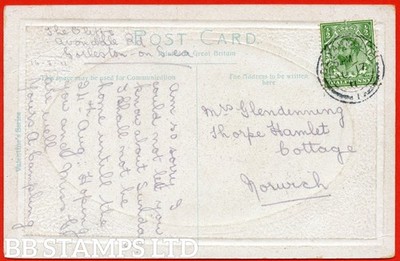 The Cliffs
Avondale Rd
Gorleston-on-Sea
POST CARD.
Great Britain
This space may be used for Communication
The Address to be written
here
Am so sorry I
could not let you
know about Sunday
I shall not be
home untill the
14th Aug. Hoping
you and Miss
are well
Yours A
Mrs Glendenning
Thorpe Hamlet
Cottage
Norwich
BB STAMPS LTD